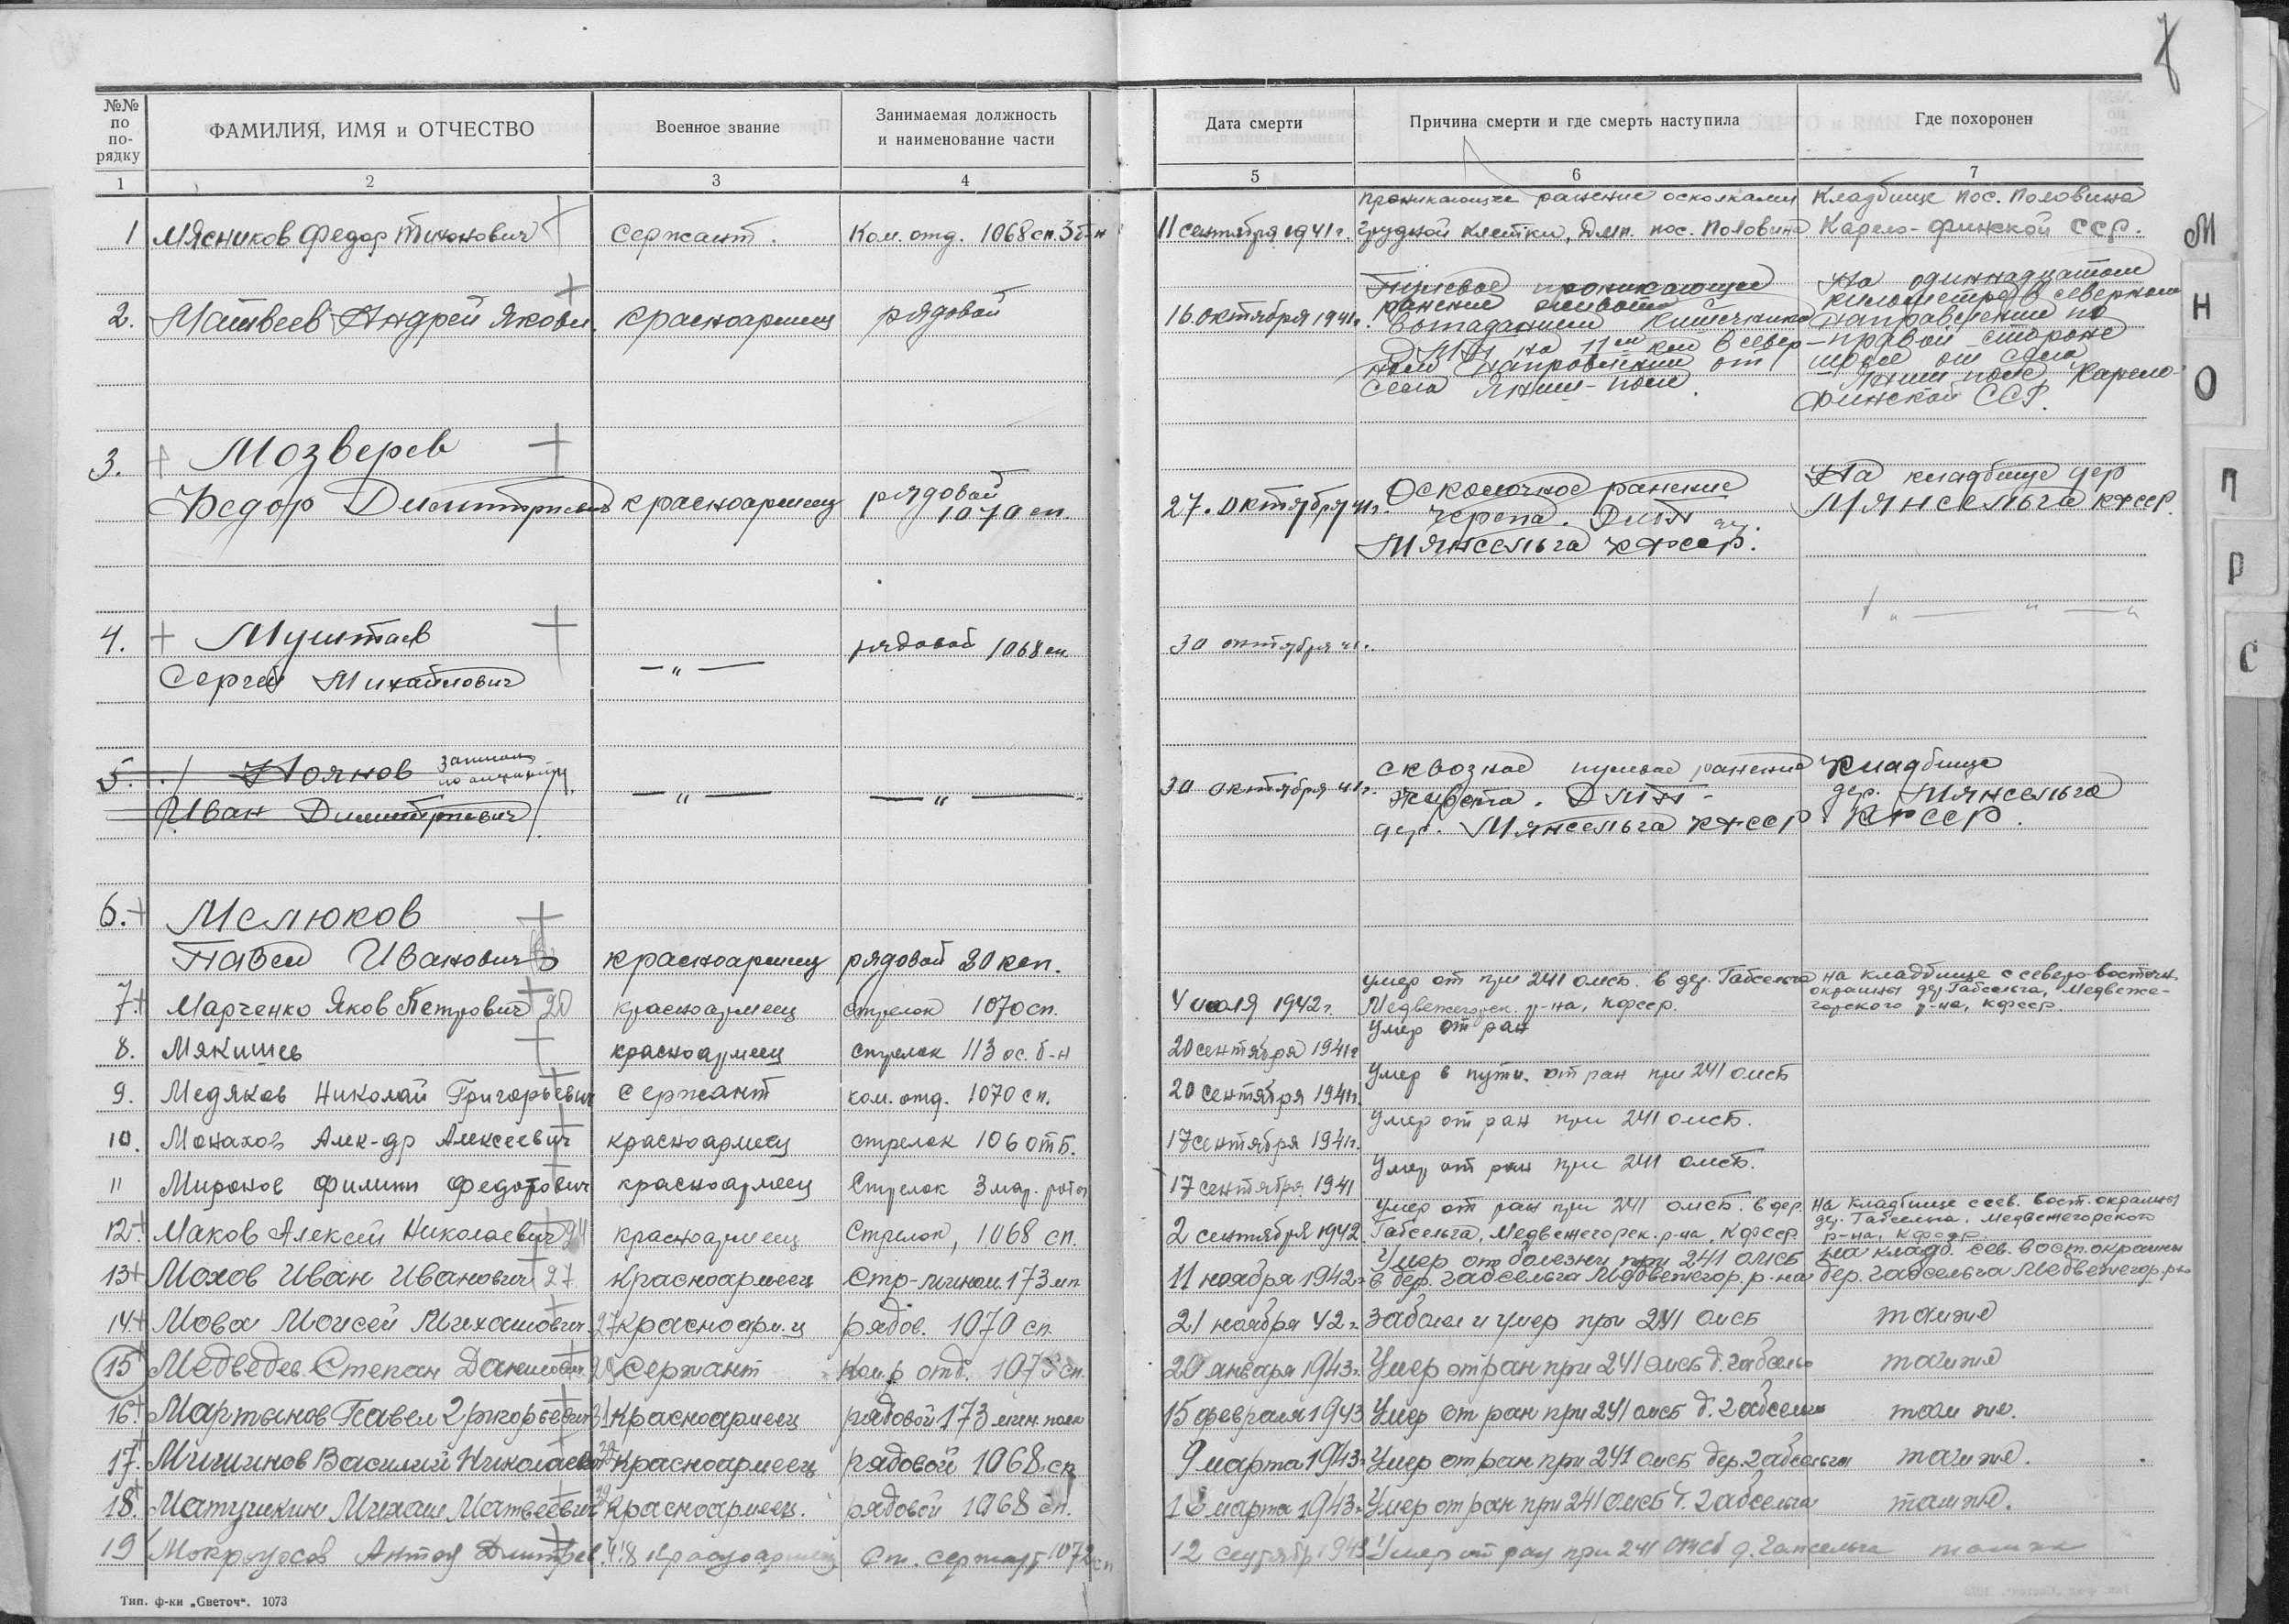 8
№№ по по-рядку
ФАМИЛИЯ, ИМЯ и ОТЧЕСТВО
Военное звание
Занимаемая должность и наименование части
Дата смерти
Причина смерти и где смерть наступила
Где похоронен
1 2 3 4 5 6 7
1 Мясников Федор Тихонович сержант. Ком. отд. 1068 сп. 3 б-н 11 сентября 1941 г.
проникающее ранение осколками
грудной клетки, Дмп. пос. Половина
Кладбище пос. Половина
Карело-Финской ССР.
2. Матвеев Андрей Яковл. красноармеец рядовой 16 октября 1941 г.
Пулевое проникающее
ранение живота с
выпадением кишечника
ДМП на 11 км в север-
ном направлении от
села Яниш-поле.
На одиннадцатом
километре в северном
направлении по
правой стороне
шоссе от села
Яниш поле, Карело-
Финской ССР.
3. Мозверев
Федор Дмитриевич красноармеец рядовой 1070 сп. 27. октября 41 г.
Осколочное ранение
черепа. ДМП дер.
Мянсельга КФССР.
На кладбище дер
Мянсельга КФССР.
4. Муштаев
Сергей Михайлович — " — рядовой 1068 сп 30 октября 41 г.
" — " — "
5. Ноянов
Иван Димитриевич — " — — " — 30 октября 41 г.
сквозное пулевое ранение
живота. ДМП -
дер. Мянсельга КФССР.
Кладбище
дер. Мянсельга
КФССР.
6. Мелюков
Павел Иванович красноармеец рядовой
7. Марченко Яков Петрович 20 красноармеец стрелок 1070 сп. 4 июля 1942 г.
умер от при 241 омсб. в дер. Габсельга
Медвежегорск. р-на, КФССР.
на кладбище с северо-восточн.
окраины дер. Габсельга, Медвеже-
горского р-на, КФССР.
8. Мякишев красноармеец стрелок 113 ос. б-н 20 сентября 1941 г Умер от ран
9. Медяков Николай Григорьевич сержант ком. отд. 1070 сп. 20 сентября 1941 г. Умер в пути. от ран при 241 омсб
10. Монахов Алек-др Алексеевич красноармеец стрелок 106 отб. 17 сентября 1941 г. Умер от ран при 241 омсб.
11 Миронов Филипп Федотович красноармеец Стрелок 3 мар. рота 17 сентября 1941 Умер от ран при 241 омсб.
12. Маков Алексей Николаевич красноармеец Стрелок, 1068 сп. 2 сентября 1942
умер от ран при 241 омсб. в дер.
Габсельга, Медвежегорск. р-на, КФССР
На кладбище с сев. вост. окраины
дер. Габсельга, Медвежегорского
р-на, КФССР.
13 Мохов Иван Иванович 27 Красноармеец 173 мп 11 ноября 1942 г
Умер от болезни при 241 омсб
в дер. Габсельга Медвежегор. р-на
на кладб. сев. вост. окраины
дер. Габсельга Медвежегор. р-на
14. Мова Моисей Михайлович 27 красноарм-ц рядов. 1070 сп 21 ноября 42 г. Заболел и умер при 241 омсб там же
15 Медведев Степан Данилович сержант Ком-р отд. сп. 20 января 1943 г. Умер от ран при 241 омсб д. Габсель там же
16. Мартынов Павел Григорьевич 31 красноармеец рядовой 173 мин полк 15 февраля 1943 Умер от ран при 241 омсб д. Габсельга там же.
17. Мишинов Василий Николаевич красноармеец рядовой 1068 сп 9 марта 1943 г. Умер от ран при 241 омсб дер. Габсельга там же.
18. Матушкин Михаил Матвеевич красноармеец. рядовой 1068 сп. марта 1943 г. Умер от ран при 241 омсб д. Габсельга там же.
19 Мокроусов Антон Дмитриев. красноармеец Ст. сержант 1072 сп 12 сентябр 1943 Умер от ран при 241 омсб д. Гапсельга там же
М
Н
О
П
Р
С
Тип. ф-ки „Светоч“. 1073